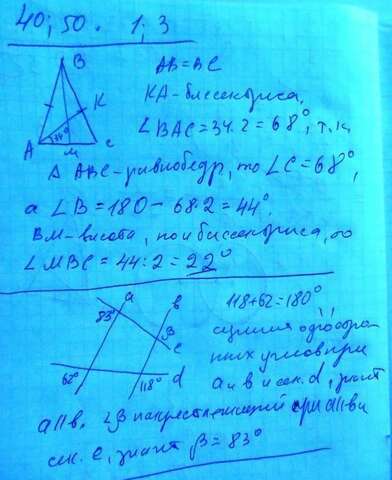 40; 50.    1; 3
B
AB = BC
K
KA - биссектриса,
34°
∠BAC = 34·2 = 68°, т.к.
A M C
Δ ABC - равнобедр, то ∠C = 68°,
а ∠B = 180 - 68·2 = 44°,
BM - высота, но и биссектриса, то
∠MBC = 44:2 = 22°
a b
83°
β
c
62° 118° d
118+62=180°
сумма односторон
них углов при
a и b и сек. d, значит
a||b. ∠β накрест лежащий при a||b и
сек. c, значит β = 83°